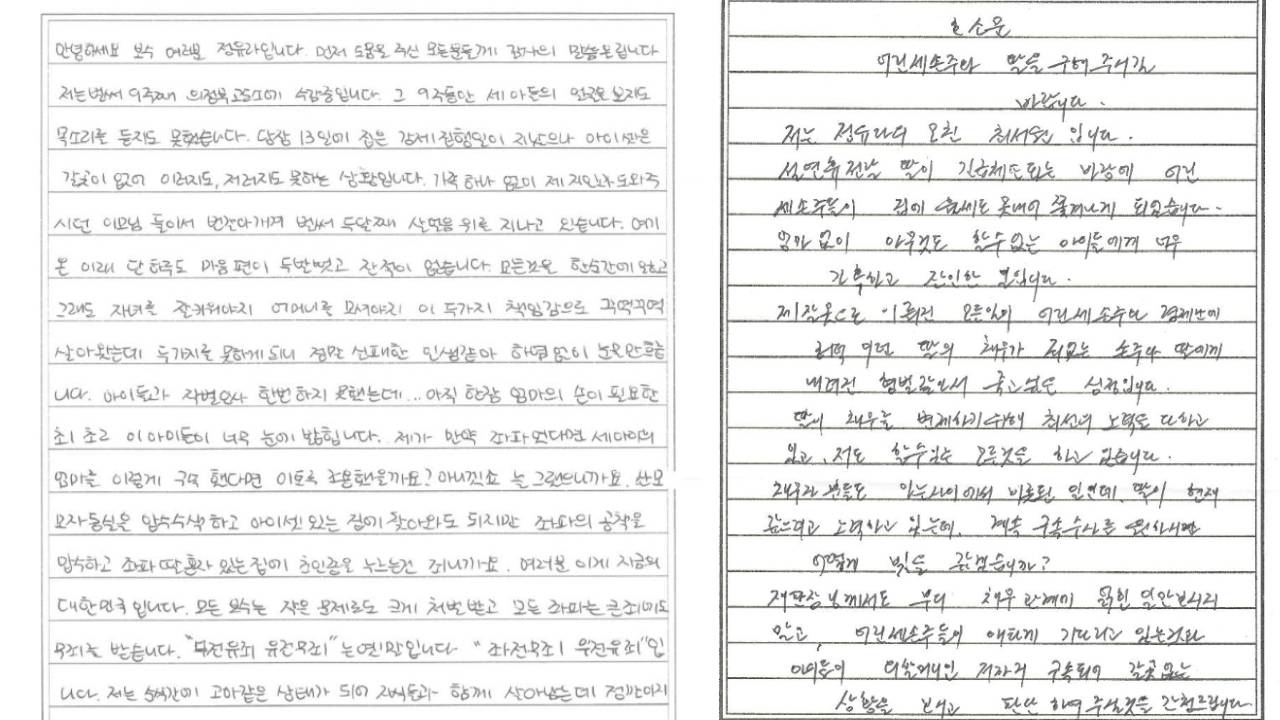 안녕하세요 보수 여러분 정유라입니다. 먼저 도움을 주신 모든분들께 감사의 말씀드립니다
저는벌써 9주째 의정부교도소에 수감중입니다. 그 9주동안 세 아들의 얼굴은 보지도
목소리를 듣지도 못했습니다. 당장 13일에 집은 강제집행일이 지났으나 아이셋은
갈곳이 없어 이러지도, 저러지도 못하는 상황입니다. 가족 하나 없이 제 지인과 도와주
시던 이모님 둘이서 번갈아가며 벌써 두달째 살얼음위를 지나고 있습니다. 여기
온 이래 단 하루도 마음 편히 두발뻗고 잔적이 없습니다. 모든것을 한순간에 잃고
그래도 자녀를 잘키워야지 어머니를 모셔야지 이 두가지 책임감으로 꾸역꾸역
살아왔는데 두가지를 못하게되니 정말 실패한 인생같아 하염없이 눈물만흐릅
니다. 아이들과 작별인사 한번하지 못했는데... 아직 한참 엄마의 손이 필요한
초1 초2 이 아이들이 너무 눈에 밟힙니다. 제가 만약 좌파였다면 세아이의
엄마를 이렇게 구속 했다면 이토록 조용했을까요? 아니겠죠 늘 그랬으니까요. 산모
모자동실은 압수수색하고 아이셋 있는 집에 찾아와도 되지만 좌파의 공작을
압수하고 좌파 딸혼자 있는집에 초인종을 누르는건 죄니까요. 여러분 이게 지금의
대한민국 입니다. 모든 보수는 작은 문제로도 크게 처벌받고 모든 좌파는 큰죄에도
무죄를 받습니다. "무전유죄 유전무죄"는 옛말입니다 "좌전무죄 우전유죄"입
니다. 저는 순식간에 고아같은 상태가 되어 자녀들과 함께 살아남는데 정말이지
호소문
어린세손주와 딸을 구해 주시길
바랍니다.
저는 정유라의 모친 최서원 입니다.
설연휴전날 딸이 긴급체포되는 바람에 어린
세손주들이 집에 월세도 못내어 쫓겨나게 되었습니다.
엄마 없이 아무것도 할수없는 아이들에게 너무
가혹하고 잔인한 일입니다.
제잘못으로 이뤄진 모든일이 어린세손주와 경제난에
허덕이던 딸의 채무가 죄없는 손주와 딸에게
내려진 형벌같아서 죽고싶은 심정입니다.
딸이 채무를 변제하기위해 최선의 노력을 다하고
있고, 저도 할수있는 모든것을 하고 있습니다.
채무라 분들도 아는사이에서 비롯된 일인데, 딸이 현재
갚으려고 노력하고 있는데, 계속 구속수사를 원하시면
어떻게 빚을 갚겠습니까?
재판장님께서도 부디 채무관계에 얽힌 일만보시지
말고, 어린세손주들이 애타게 기다리고 있는것과
아이들의 외할머니인 저자격 구속되어 갈곳없는
상황을 보시고 판단 하여주실것을 간청드립니다.